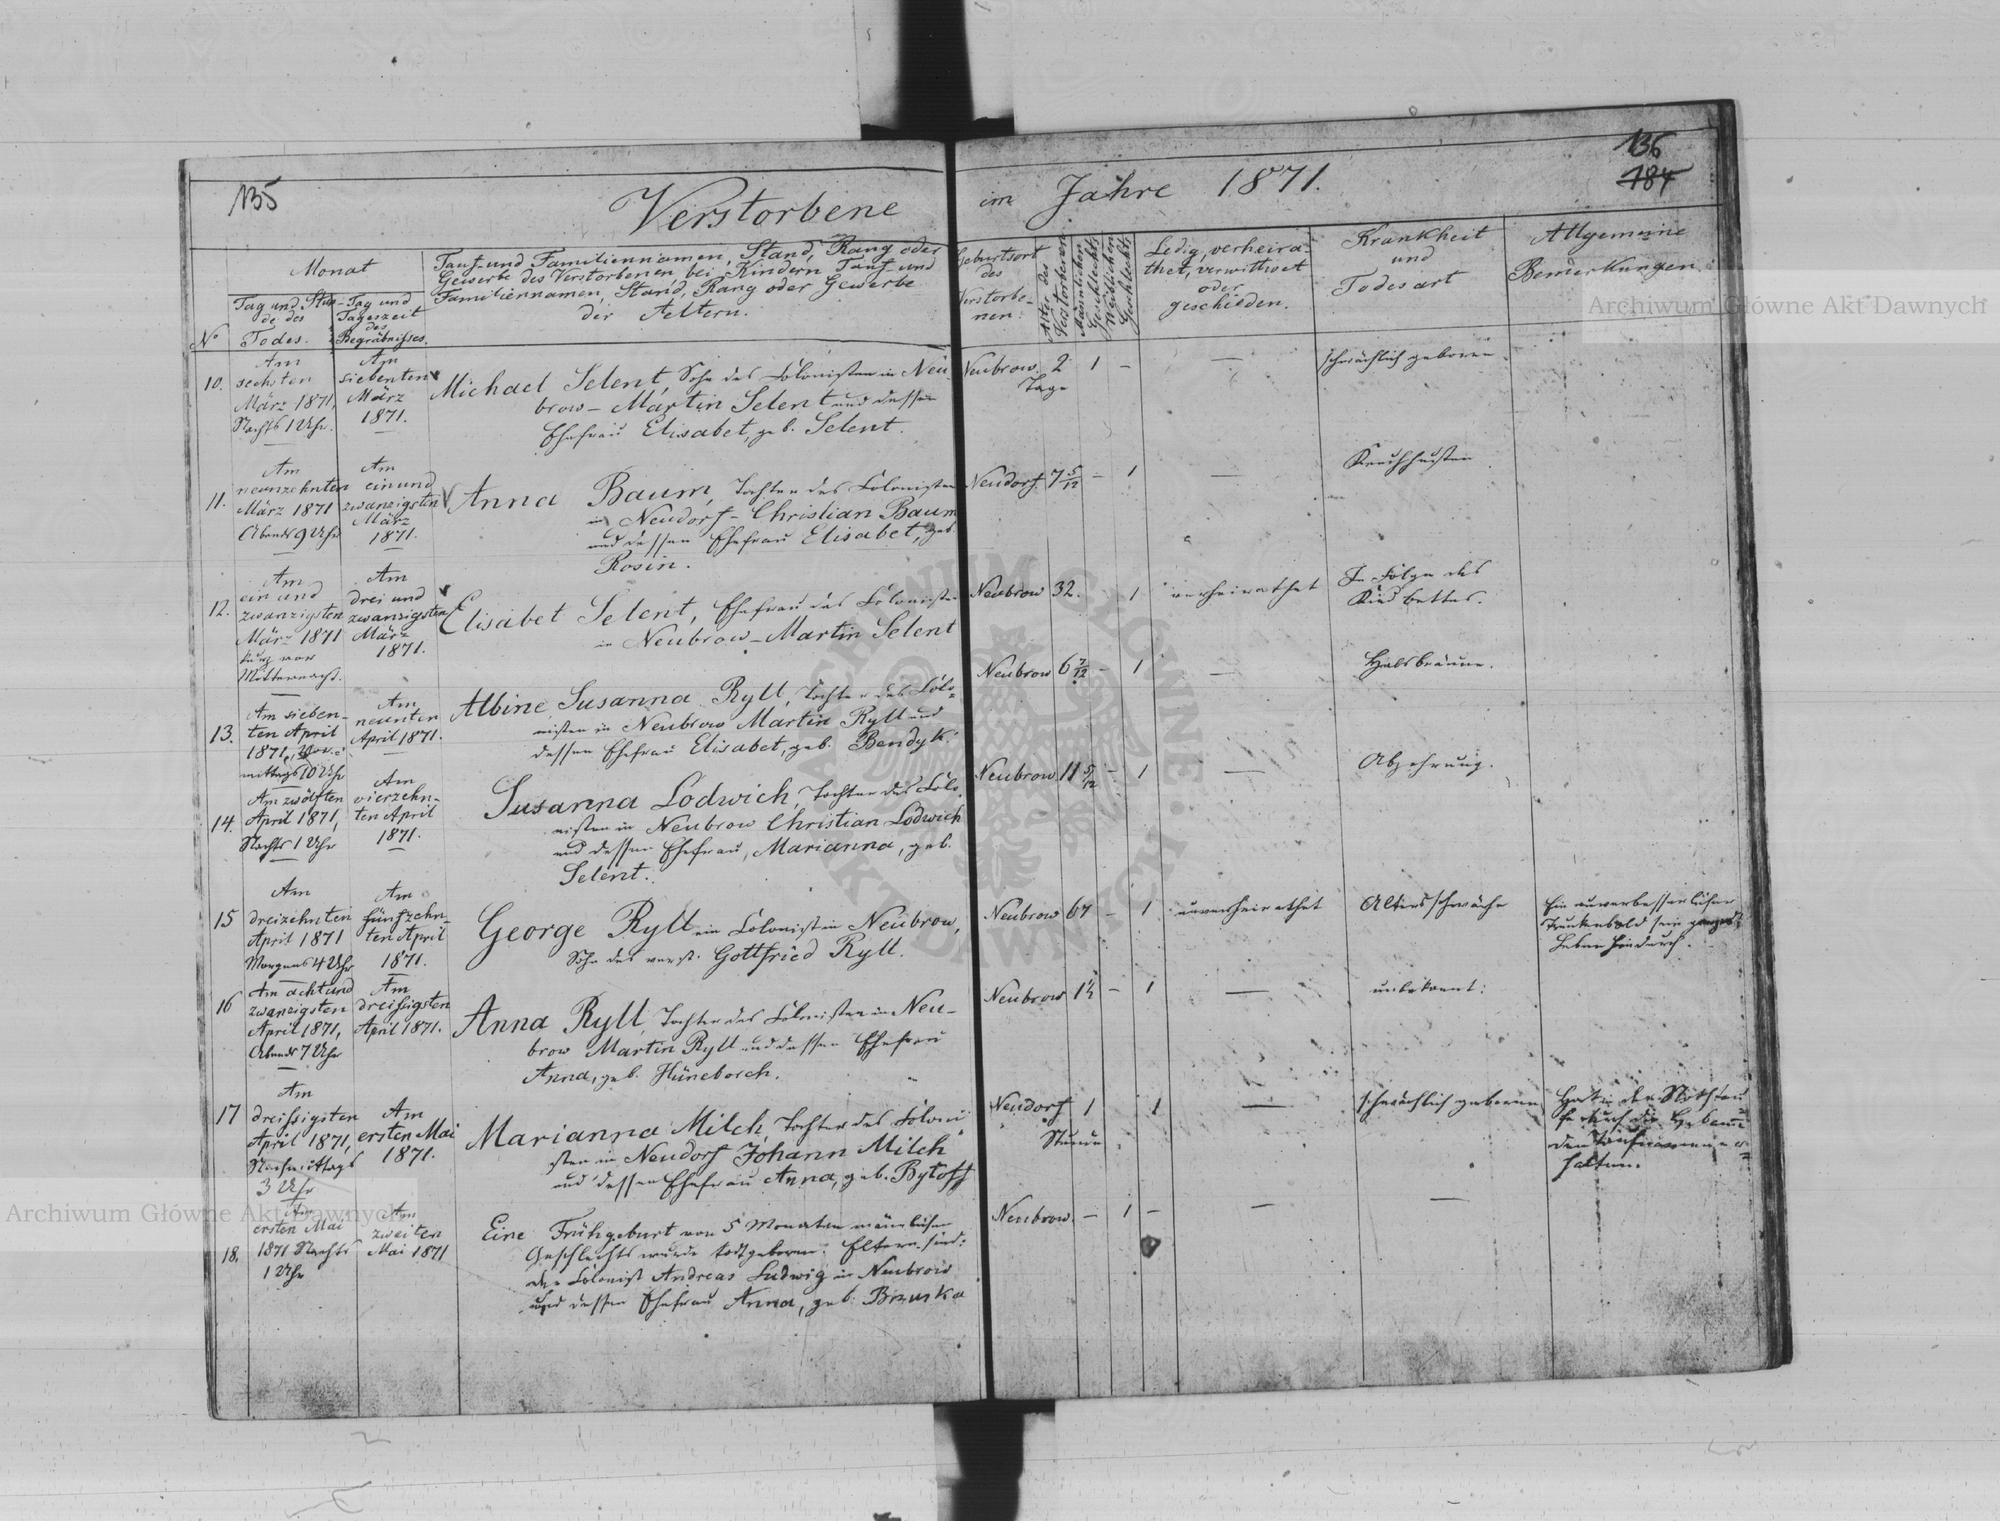 135
136
184
Verstorbene im Jahre 1871.
Monat
Tag und Stun-
de des
Todes.
Tag und
Tageszeit
des
Begräbnisses.
No
Tauf- und Familiennamen, Stand, Rang oder
Gewerbe des Verstorbenen, bei Kindern Tauf- und
Familiennamen, Stand, Rang oder Gewerbe
der Aeltern.
Geburtsort
des
Verstorbe-
nen.
Alter des
Verstorbenen
Männlichen
Geschlechts.
Weiblichen
Geschlechts.
Ledig, verheira-
thet, verwittwet
oder
geschieden.
Krankheit
und
Todesart
Allgemeine
Bemerkungen.
10.
Am
sechsten
März 1871,
Nachts 1 Uhr.
Am
siebenten
März
1871.
Michael Selent, Sohn des Colonisten in Neu-
brow - Martin Selent und dessen
Ehefrau Elisabet, geb. Selent.
Neubrow. 2 1 – —
Tage
schwächlich geboren.
11.
Am
neunzehnten
März 1871
Abends 9 Uhr
Am
einund
zwanzigsten
März
1871.
Anna Baum, Tochter des Colonisten
in Neudorf - Christian Baum
und dessen Ehefrau Elisabet, geb.
Rosin.
Neudorf. 7 5/12 – 1 —
Keuchhusten
12.
Am
ein und
zwanzigsten
März 1871
kurz vor
Mitternacht.
Am
drei und
zwanzigsten
März
1871.
Elisabet Selent, Ehefrau des Colonisten
in Neubrow - Martin Selent
Neubrow 32. 1 verheirathet
In Folge des
Kindbettes.
13.
Am sieben-
ten April
1871, Vor-
mittags 10 Uhr
Am
neunten
April 1871.
Albine Susanna Ryll, Tochter des Colo-
nisten in Neubrow Martin Ryll und
dessen Ehefrau Elisabet, geb. Bendyk.
Neubrow 6 7/12 – 1 —
Halsbräune.
14.
Am zwölften
April 1871,
Nachts 1 Uhr
Am
vierzehn-
ten April
1871.
Susanna Lodwich, Tochter des Colo-
nisten in Neubrow Christian Lodwich
und dessen Ehefrau, Marianna, geb.
Selent.
Neubrow 11 5/12 – 1 —
Abzehrung.
15
Am
dreizehnten
April 1871
Morgens 4 Uhr
Am
fünfzehn-
ten April
1871.
George Ryll ein Colonist in Neubrow,
Sohn des verst. Gottfried Ryll.
Neubrow 67 – 1 unverheirathet
Altersschwäche
Ein unverbesserlicher
Trunkenbold sein ganzes
Leben hindurch.
16
Am achtund
zwanzigsten
April 1871,
Abends 7 Uhr
Am
dreißigsten
April 1871.
Anna Ryll, Tochter des Colonisten in Neu-
brow Martin Ryll und dessen Ehefrau
Anna, geb. Hüneborch.
Neubrow – 1 —
unbekannt.
17
Am
dreißigsten
April 1871,
Nachmittags
3 Uhr
Am
ersten Mai
1871.
Marianna Milch, Tochter des Coloni-
sten in Neudorf Johann Milch
und dessen Ehefrau Anna, geb. Bytoff
Neudorf 1 1 —
Stunde
schwächlich geboren
Hat in der Nothtau-
fe durch die Hebamme
den Taufnamen er-
halten.
18.
Am
ersten Mai
1871 Nachts
1 Uhr
Am
zweiten
Mai 1871
Eine Frühgeburt von 5 Monaten männlichen
Geschlechts wurde todtgeboren. Eltern sind:
der Colonist Andreas Ludwig in Neubrow
und dessen Ehefrau Anna, geb.
Neubrow. – 1 – — —
Archiwum Główne Akt Dawnych
Archiwum Główne Akt Dawnych
ARCHIWUM GŁÓWNE AKT DAWNYCH